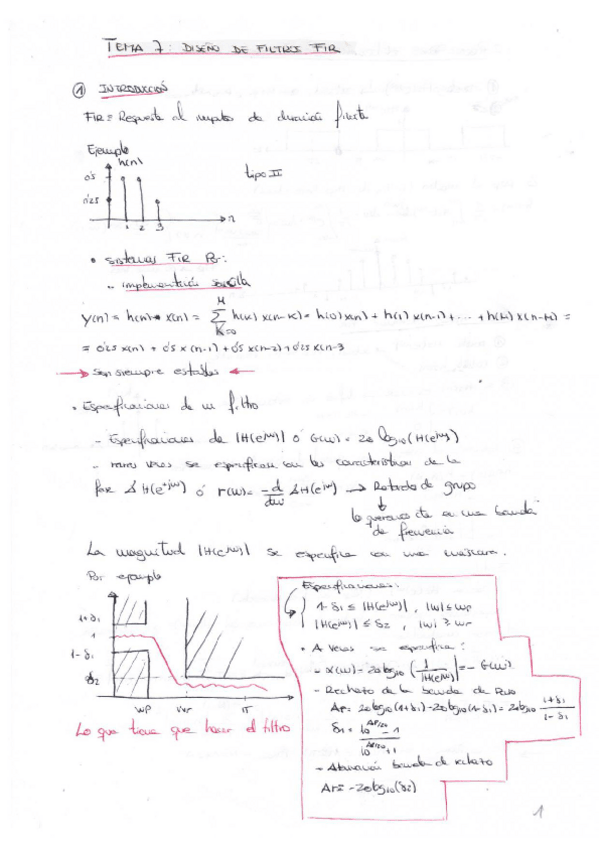 TEMA 7: DISEÑO DE FILTROS FIR
① INTRODUCCIÓN
FIR = Respuesta al impulso de duración finita
Ejemplo
h(n)
tipo II
0'5
0'25
1 2 3
n
• Sistemas FIR Por:
- implementación sencilla
y(n) = h(n) * x(n) = M Σ K=0 h(k) x(n-k) = h(0) x(n) + h(1) x(n-1) + ... + h(k) x(n-k) =
= 0'25 x(n) + 0'5 x(n-1) + 0'5 x(n-2) + 0'25 x(n-3
Son siempre estables
• Especificaciones de un filtro
- Especificaciones de |H(e^jω)| ó G(ω) = 20 log10 (H(e^jω))
- veces se especifican con las características de la
fase ∡H(e^jω) ó τ(ω) = -d/dω ∡H(e^jω) → Retardo de grupo
lo queremos cte en una banda
de frecuencia
La magnitud |H(e^jω)| se especifica con una máscara.
Por ejemplo
1+δ1
1
1-δ1
δ2
ωp ωr π
Lo que tiene que hacer el filtro
Especificaciones:
1-δ1 ≤ |H(e^jω)|, |ω| ≤ ωp
|H(e^jω)| ≤ δ2, |ω| ≥ ωr
• A veces se especifica:
- α(ω) = 20 log10 (1/|H(e^jω)|) = - G(ω)
- de la banda de Paso
Ap = 20 log10 (1+δ1) - 20 log10 (1-δ1) = 20 log10 1+δ1/1-δ1
δ1 = 10^Ap/20 - 1 / 10^Ap/20 + 1
- Atenuación banda de rechazo
Ar = -20 log10 (δ2)
1